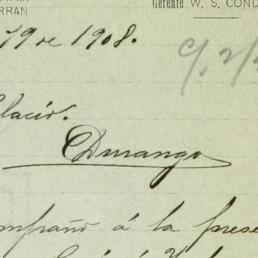 RRAN
Gerente W. S. COND
19 de 1908.
C/. 2/
lacio.
Durango
ompaño á la prese